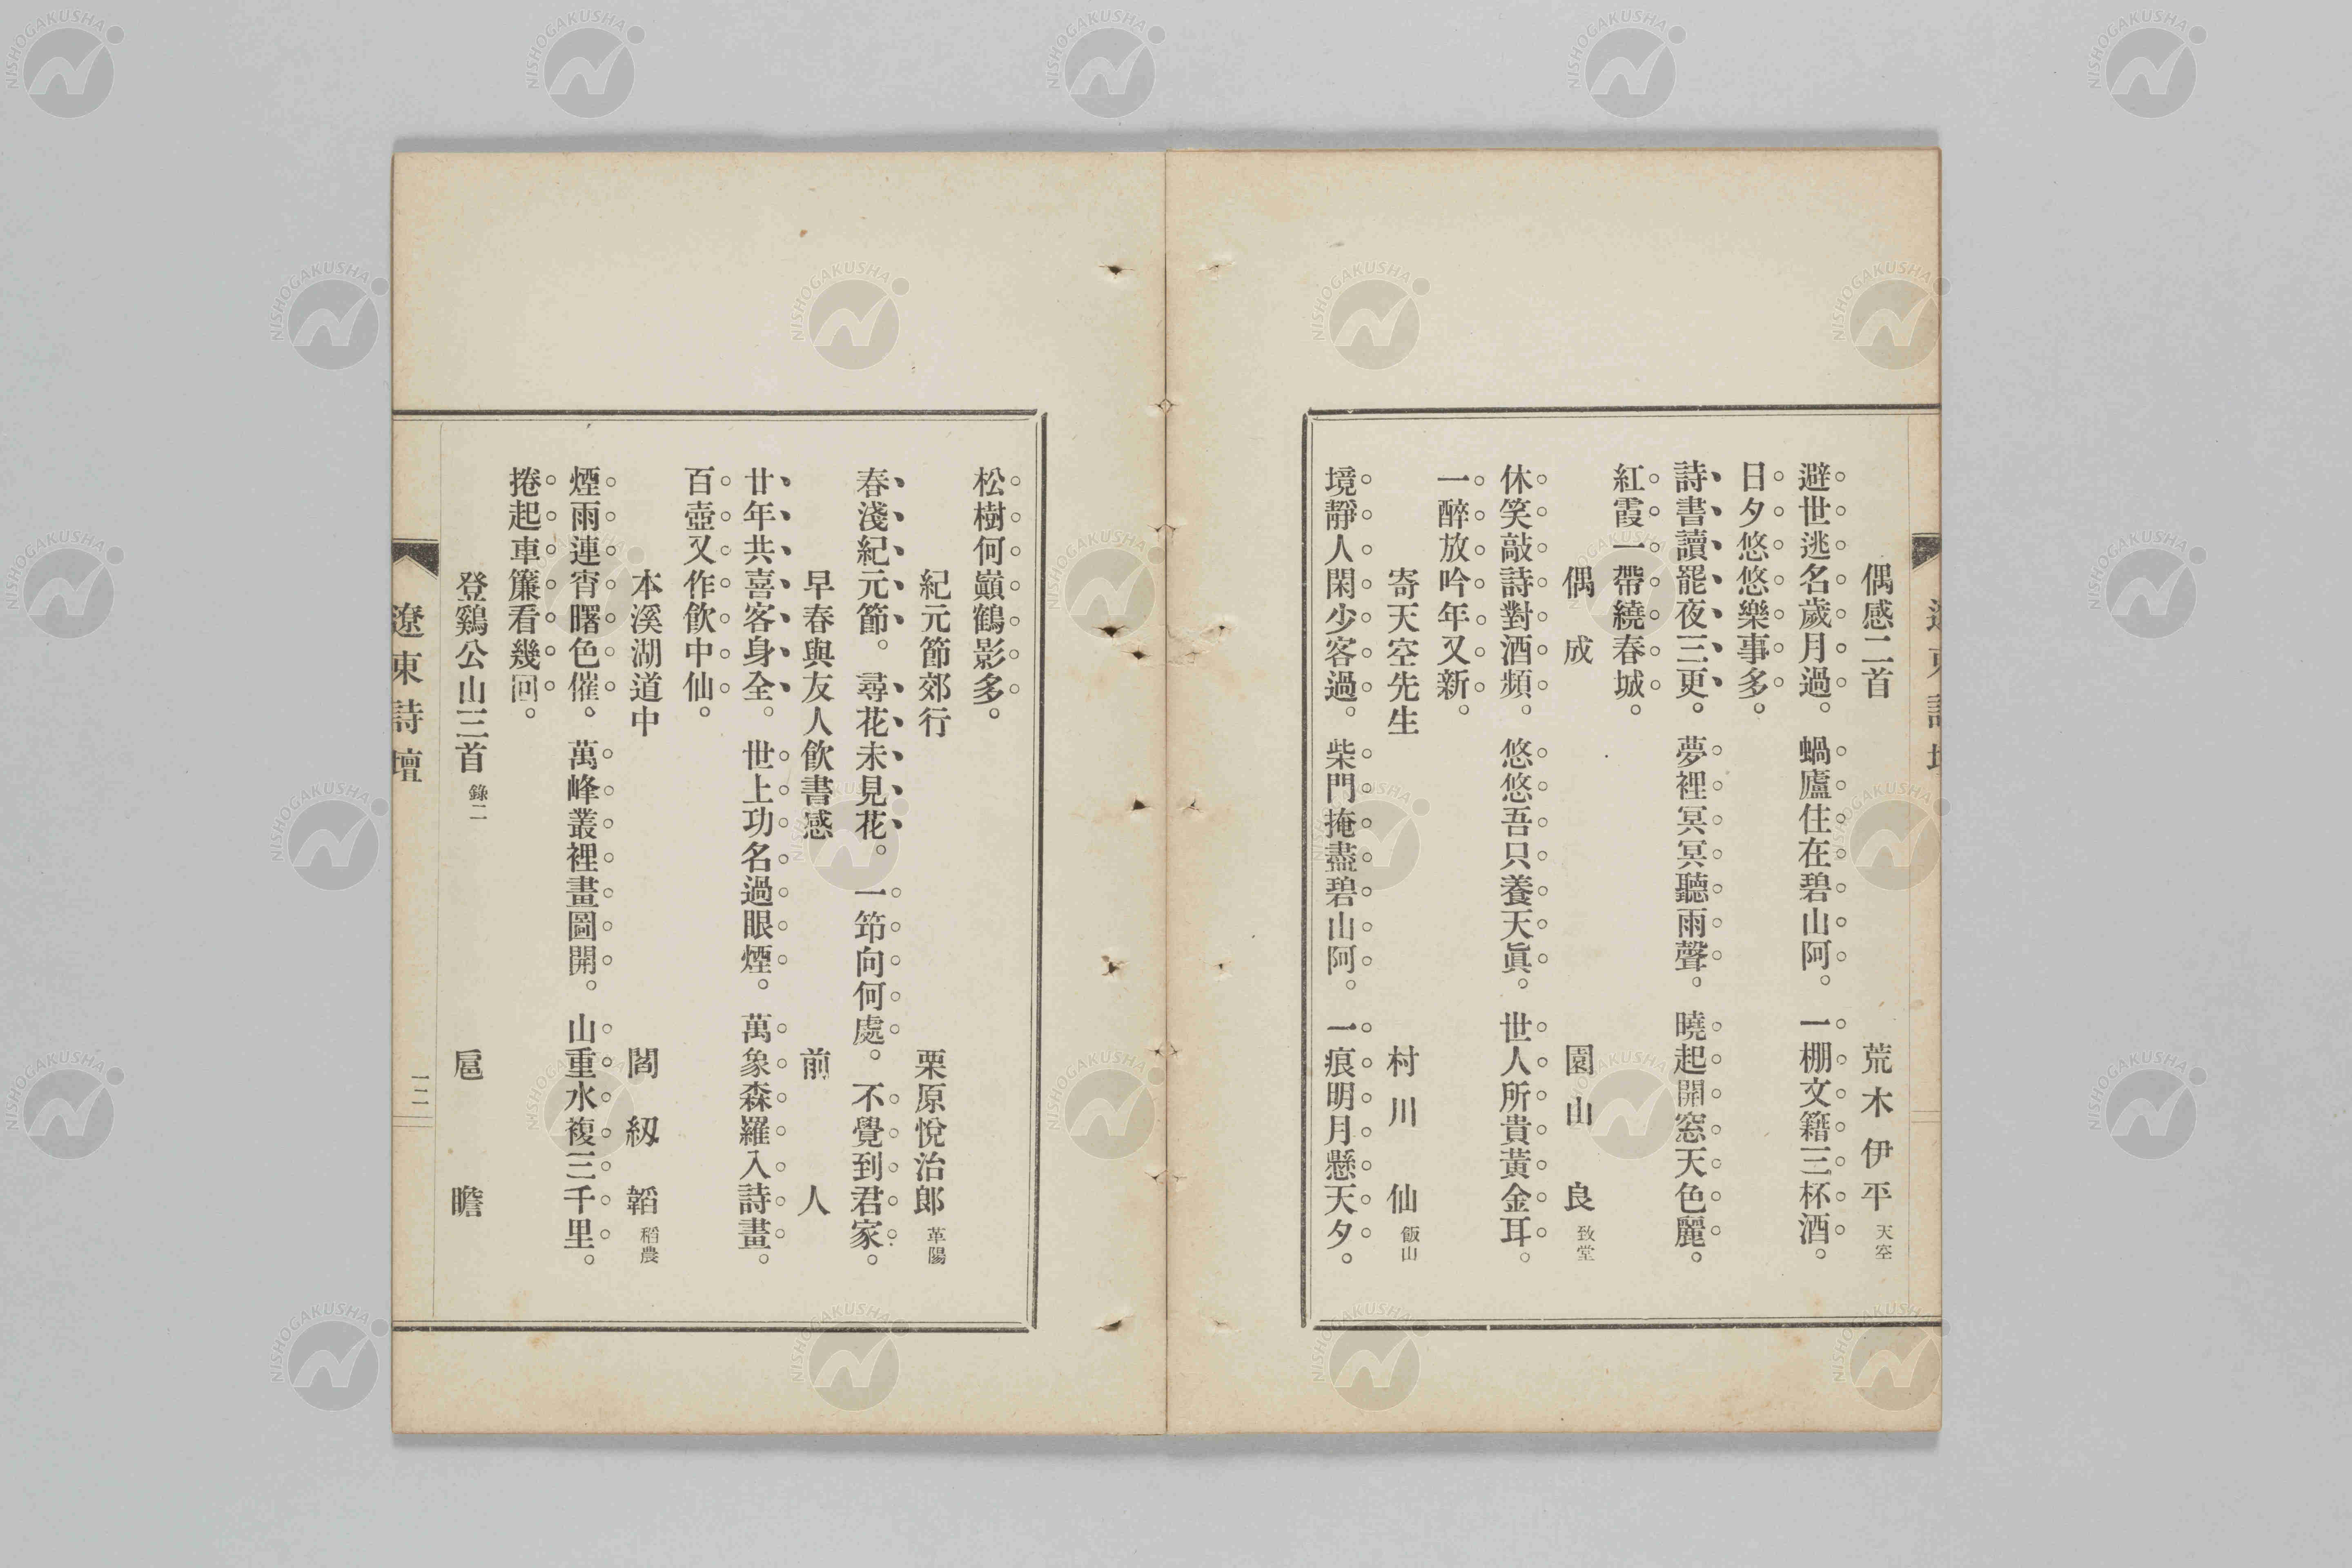 偶感二首　荒木伊平 天空
避世逃名歲月過。蝸廬住在碧山阿。一棚文籍三杯酒。
日夕悠悠樂事多。
詩書讀罷夜三更。夢裡冥冥聽雨聲。曉起開窓天色麗。
紅霞一帶繞春城。
偶成　園山良 致堂
休笑敲詩對酒頻。悠悠吾只養天眞。世人所貴黃金耳。
一醉放吟年又新。
寄天空先生　村川仙 飯山
境靜人閑少客過。柴門掩盡碧山阿。一痕明月懸天夕。
松樹何巓鶴影多。
紀元節郊行　栗原悅治郎 革陽
春淺紀元節。尋花未見花。一筇向何處。不覺到君家。
早春與友人飮書感　前人
廿年共喜客身全。世上功名過眼煙。萬象森羅入詩畫。
百壺又作飮中仙。
本溪湖道中　閻紉韜 稻農
煙雨連宵曙色催。萬峰叢裡畫圖開。山重水複三千里。
捲起車簾看幾回。
登鷄公山三首 錄二　扈瞻
遼東詩壇
一二
NISHOGAKUSHA